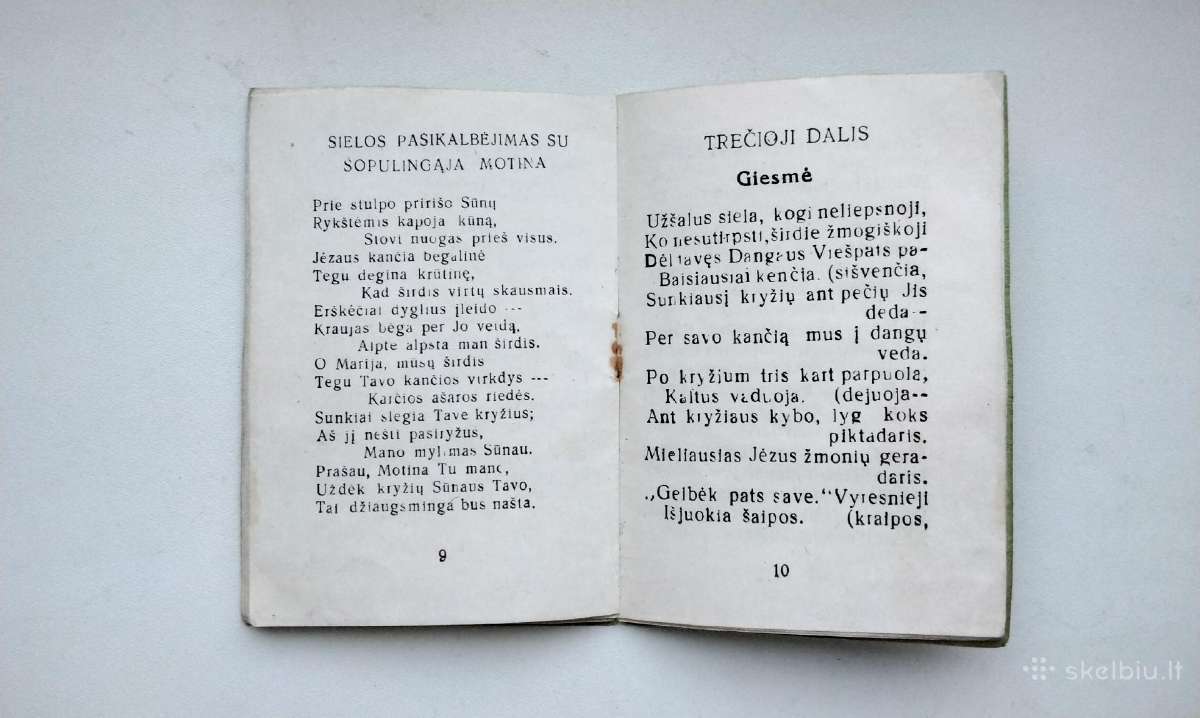 SIELOS PASIKALBĖJIMAS SU
SOPULINGĄJA MOTINA
Prie stulpo pririšo Sūnų
Rykštėmis kapoja kūną,
Stovi nuogas prieš visus.
Jėzaus kančia begalinė
Tegu degina krūtinę,
Kad širdis virtų skausmais.
Erškėčiai dyglius įleido ---
Kraujas bėga per Jo veidą,
Alpte alpsta man širdis.
O Marija, mūsų širdis
Tegu Tavo kančios virkdys ---
Karčios ašaros riedės.
Sunkiai slegia Tave kryžius;
Aš jį nešti pasiryžus,
Mano mylimas Sūnau.
Prašau, Motina Tu mane,
Uždėk kryžių Sūnaus Tavo,
Tai džiaugsminga bus našta.
9
TREČIOJI DALIS
Giesmė
Užšalus siela, kogi neliepsnoji,
Ko nesutirpsti,širdie žmogiškoji
Dėl tavęs Dangaus Viešpats pa-
Baisiausiai kenčia. (sišvenčia,
Sunkiausį kryžių ant pečių Jis
deda--
Per savo kančią mus į dangų
veda.
Po kryžium tris kart parpuola,
Kaltus vaduoja. (dejuoja--
Ant kryžiaus kybo, lyg koks
piktadaris.
Mieliausias Jėzus žmonių gera-
daris.
„Gelbėk pats save.“Vyresnieji
Išjuokia šaipos. (kraipos,
10
skelbiu.lt